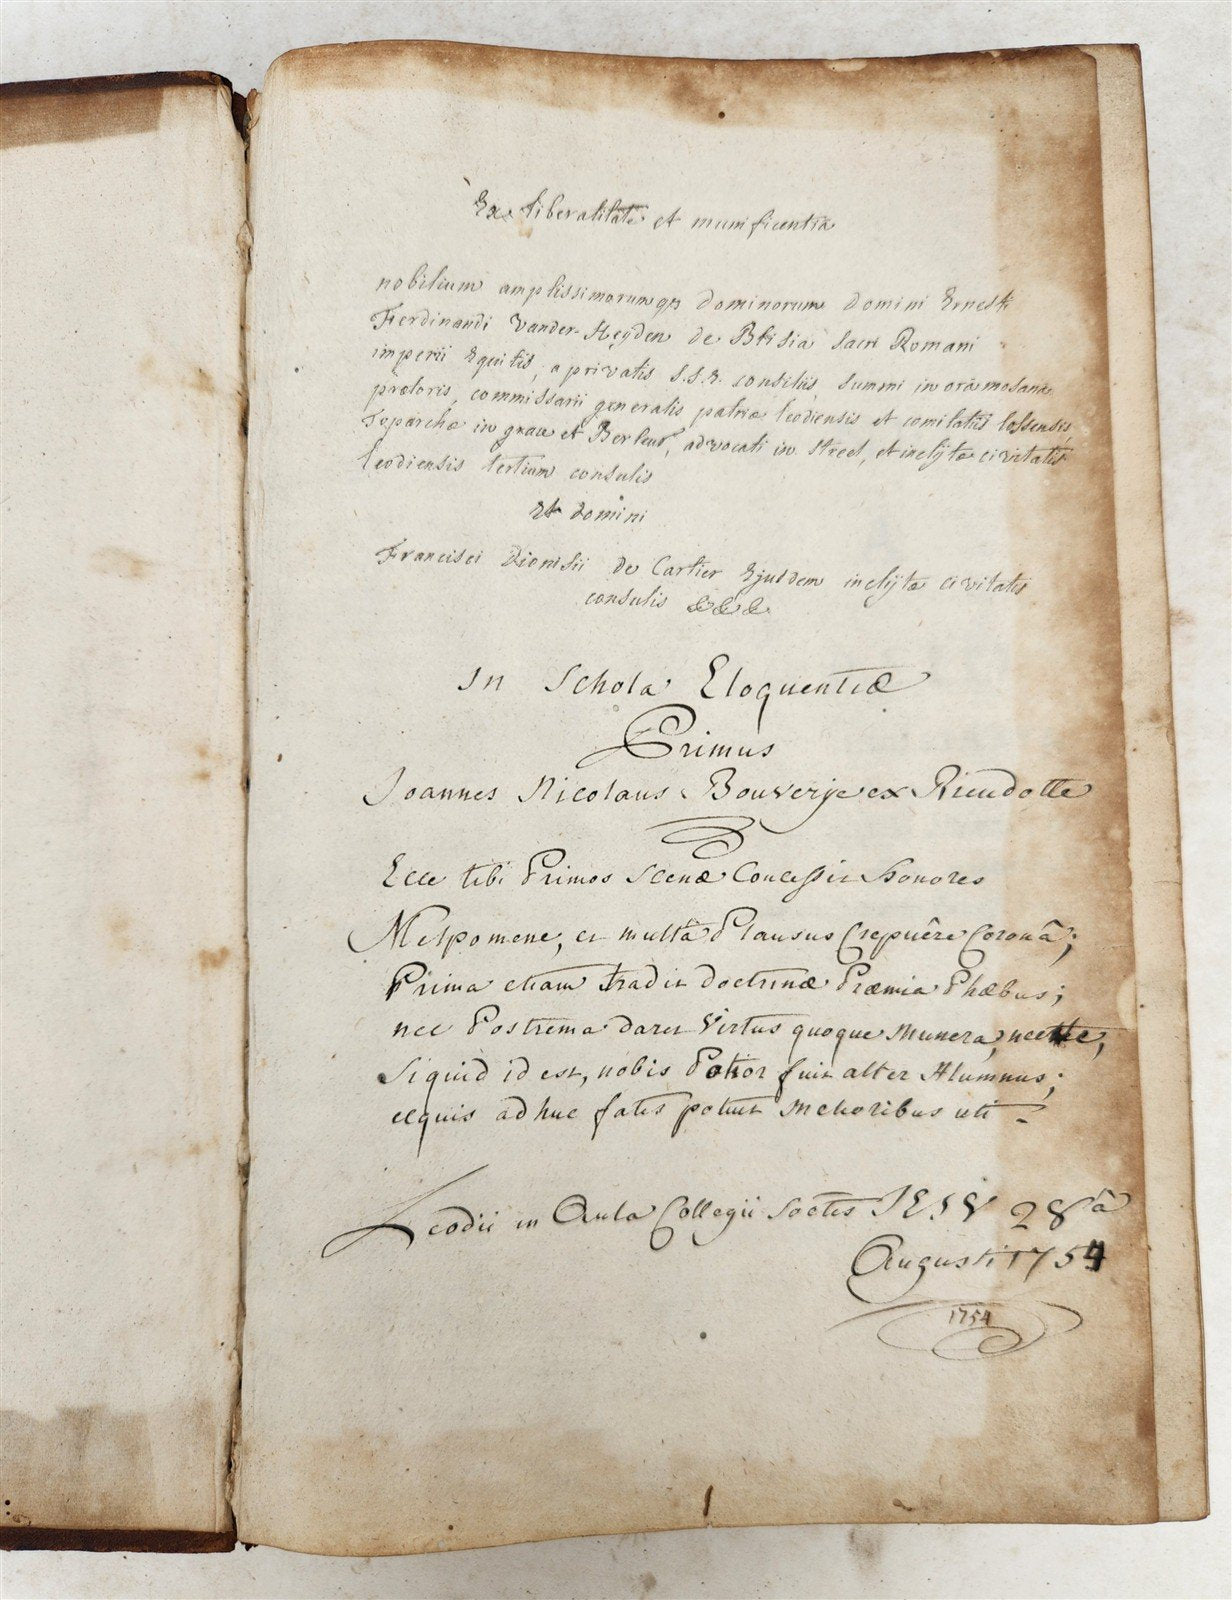 Ex liberalitate et munificentia
nobilium amplissimorumqz dominorum domini Ernesti
Ferdinandi Vander-Heyden de Blisia sacri Romani
imperii Equitis, a privatis S.S.E. consiliis, summi in orâ mosanâ
prætoris, commissarii generalis patriæ leodiensis et comitatûs lossensis,
Toparchæ in grace et Berleur, advocati in Streel, et inclytæ civitatis
leodiensis tertium consulis
Et domini
Francisci Dionisii de Cartier Ejusdem inclytæ civitatis
consulis &&&
In Schola Eloquentiæ
Primus
Joannes Nicolaus Bouverje ex Rieudotte
Ecce tibi Primos Scenæ Concessit honores
Melpomene, et multâ Plausus Crepuêre Coronâ;
Prima etiam tradit doctrinæ Præmia Phæbus;
nec Postrema daret Virtus quoque munera, nec te,
Siquid id est, nobis Potior fuit alter Alumnus;
ecquis adhuc fatis potuit melioribus uti
Leodii in Aula Collegii Soctis JESV 28â
Augusti 1754
1754